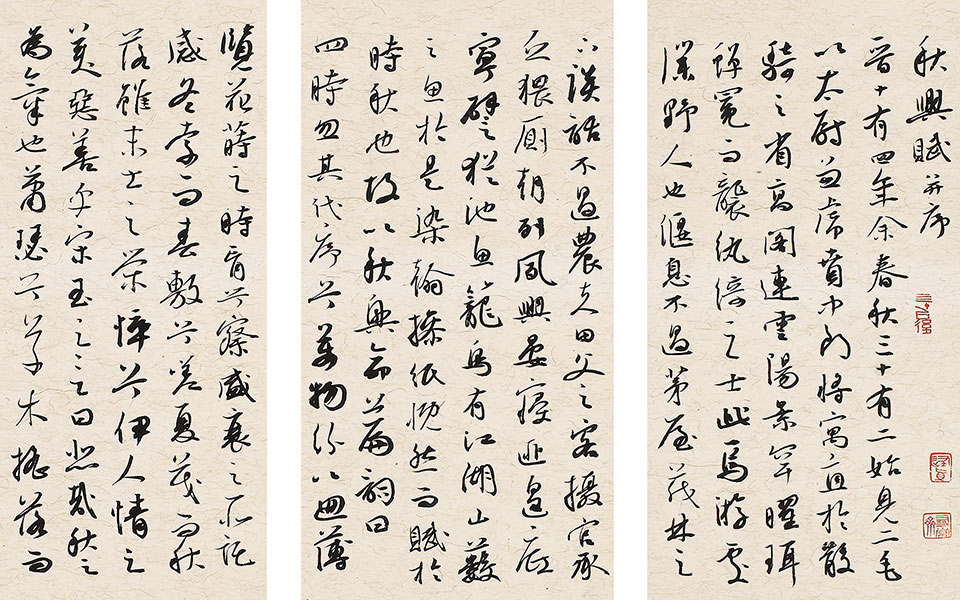 秋興賦并序
晉十有四年余春秋三十有二始見二毛
以太尉兼虎賁中郎將寓直於散
騎之省高閣連雲陽景罕曜珥
蟬冕而襲紈綺之士此焉游處
僕野人也偃息不過茅屋茂林之
下談話不過農夫田父之客攝官承
乏猥厠朝列夙興晏寢匪遑底
寧譬猶池魚籠鳥有江湖山藪
之思於是染翰操紙慨然而賦於
時秋也故以秋興命篇詞曰
四時忽其代序兮萬物紛以迴薄
覽花蒔之時育兮察盛衰之所託
感冬索而春敷兮嗟夏茂而秋
落雖末士之榮悴兮伊人情之
美惡善乎宋玉之言曰悲哉秋之
為氣也蕭瑟兮草木搖落而